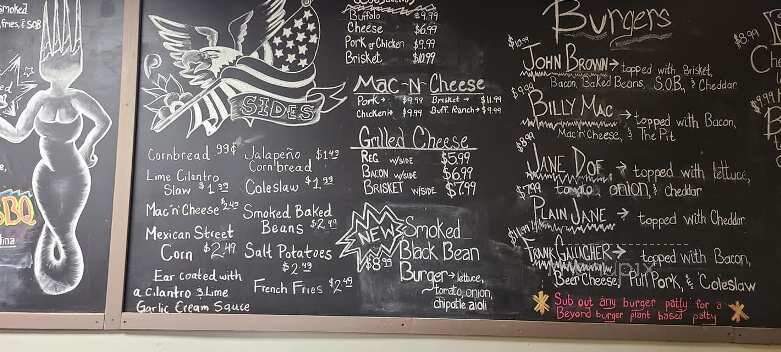 smoked
fries, & SOB
BBQ
SIDES
Cornbread 99¢
Lime Cilantro
Slaw $1.99
Mac'n'Cheese $2.49
Mexican Street
Corn $2.49
Ear coated with
a Cilantro & Lime
Garlic Cream Sauce
Jalapeño $1.49
Cornbread
Coleslaw $1.99
Smoked Baked
Beans $2.49
Salt Potatoes
$2.49
French Fries $2.49
Buffalo $9.99
Cheese $6.99
Pork or Chicken $9.99
Brisket $10.99
Mac-N-Cheese
Pork→ $9.99 Brisket→ $11.99
Chicken→ $9.99 Buff. Ranch→ $9.99
Grilled Cheese
Reg w/side $5.99
Bacon w/side $6.99
Brisket w/side $7.99
NEW Smoked
Black Bean
$8.99 Burger→ lettuce,
tomato, onion,
chipotle aioli
Burgers
$10.99 John Brown→ topped with Brisket,
Bacon, Baked Beans, S.O.B., & Cheddar
$9.99 Billy Mac→ topped with Bacon,
Mac'n'Cheese, & The Pit
$8.99 Jane Doe→ topped with lettuce,
tomato, onion, & cheddar
$7.99 Plain Jane→ topped with Cheddar
$11.99 Frank Gallagher→ topped with Bacon,
Beer Cheese, Pull Pork, & Coleslaw
Sub out any burger patty for a
Beyond burger plant based patty
$8.99
$9.99